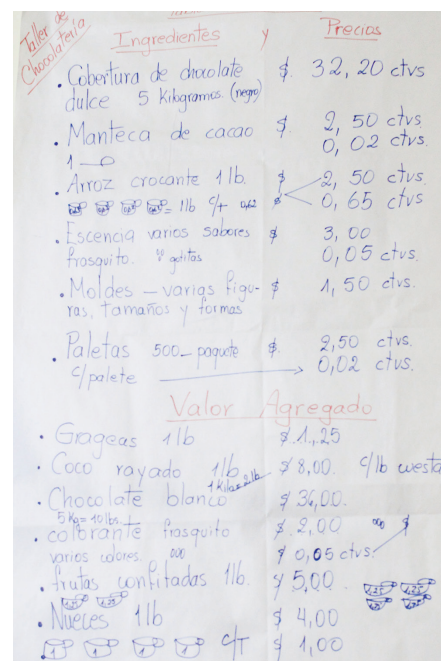 Taller de
Chocolatería
Ingredientes y Precios
. Cobertura de chocolate $. 32,20 ctvs
dulce 5 kilogramos. (negro)
. Manteca de cacao $. 2,50 ctvs
1 0,02 ctvs.
. Arroz crocante 1 lb. $ 2,50 ctvs
= 1lb c/t $ 0,65 ctvs
. Escencia varios sabores $ 3,00
frasquito. gotitas 0,05 ctvs.
. Moldes – varias figu- $ 1,50 ctvs.
ras, tamaños y formas
. Paletas 500 – paquete $. 2,50 ctvs.
c/palete 0,02 ctvs.
Valor Agregado
. Grageas 1 lb $. 1,25
. Coco rayado 1 lb $ 8,00. c/lb cuesta
1 kilo = 2 lb
. Chocolate blanco $ 36,00.
5 Kg = 10 lbs.
. colorante frasquito $. 2,00 $
varios colores. $ 0,05 ctvs.
. frutas confitadas 1 lb. $ 5,00.
1,25 1,25 1,25 1,25
. Nueces 1 lb $ 4,00
1 1 1 1 c/T $ 1,00